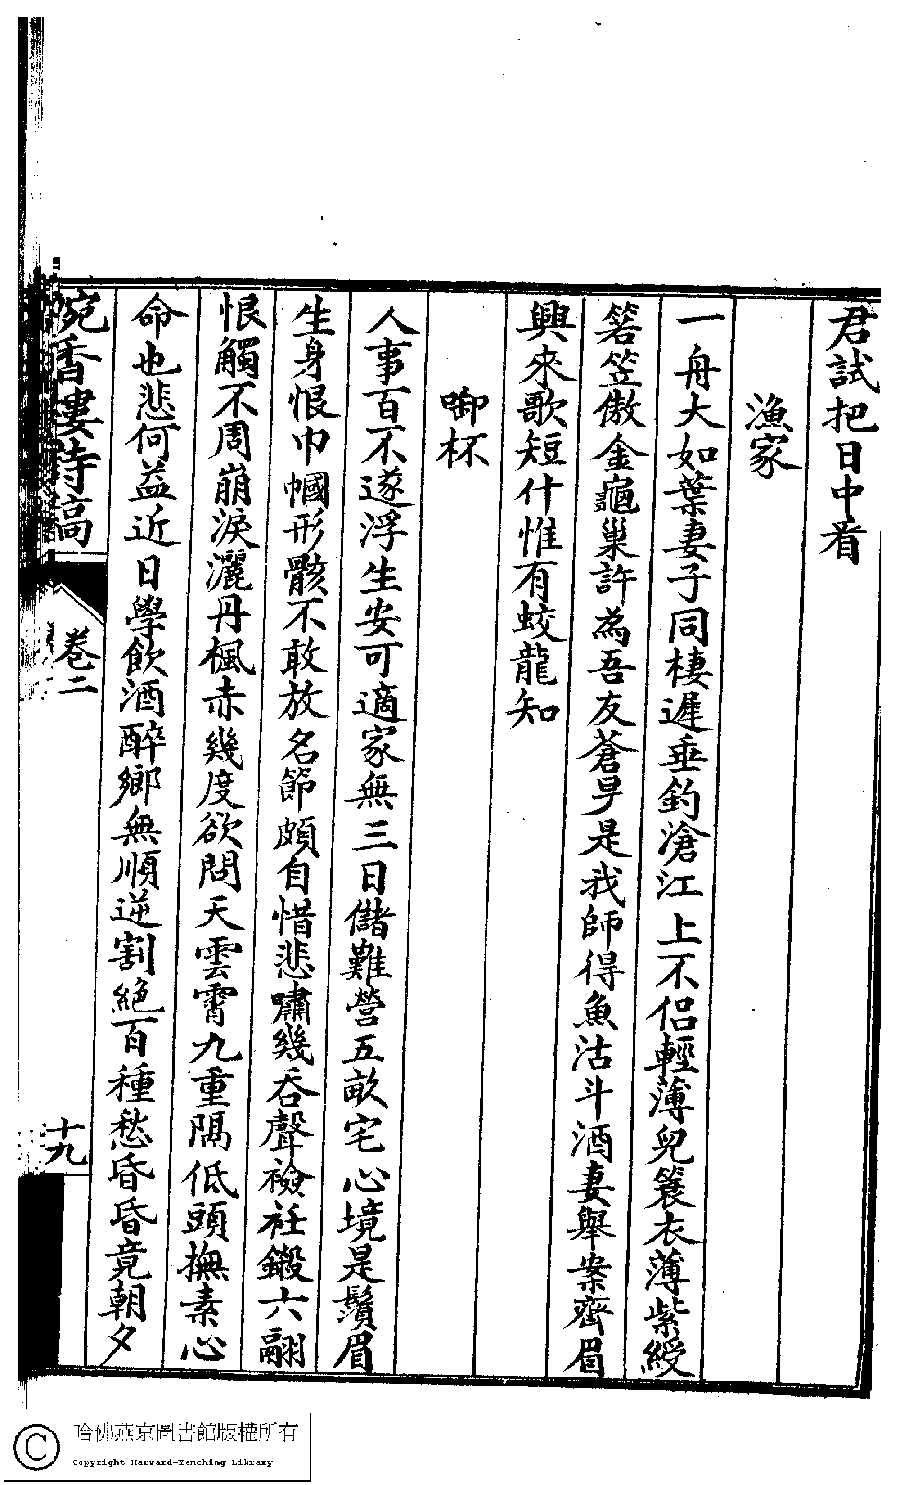 君試把日中看
漁家
一舟大如葉妻子同棲遲垂釣滄江上不侶輕薄兒簑衣薄紫綬
箬笠傲金龜巢許為吾友蒼旻是我師得魚沽斗酒妻舉案齊眉
興來歌短什惟有蛟龍知
啣杯
人事百不遂浮生安可適家無三日儲難營五畝宅心境是鬚眉
生身恨巾幗形骸不敢放名節頗自惜悲嘯幾吞聲襝衽鎩六翮
恨觸不周崩淚灑丹楓赤幾度欲問天雲霄九重隔低頭撫素心
命也悲何益近日學飲酒醉鄉無順逆割絕百種愁昏昏竟朝夕
浣香樓詩高
卷二
十九
哈佛燕京圖書館版權所有
Copyright Harvard-Yenching Library